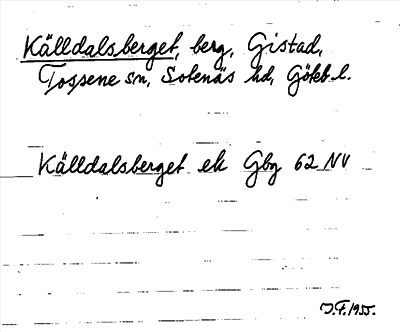 Källdalsberget, berg, Gistad,
Tossene sn, Sotenäs hd, Göteb. l.
Källdalsberget ek Gbg 62 NV
J.F. 1955.